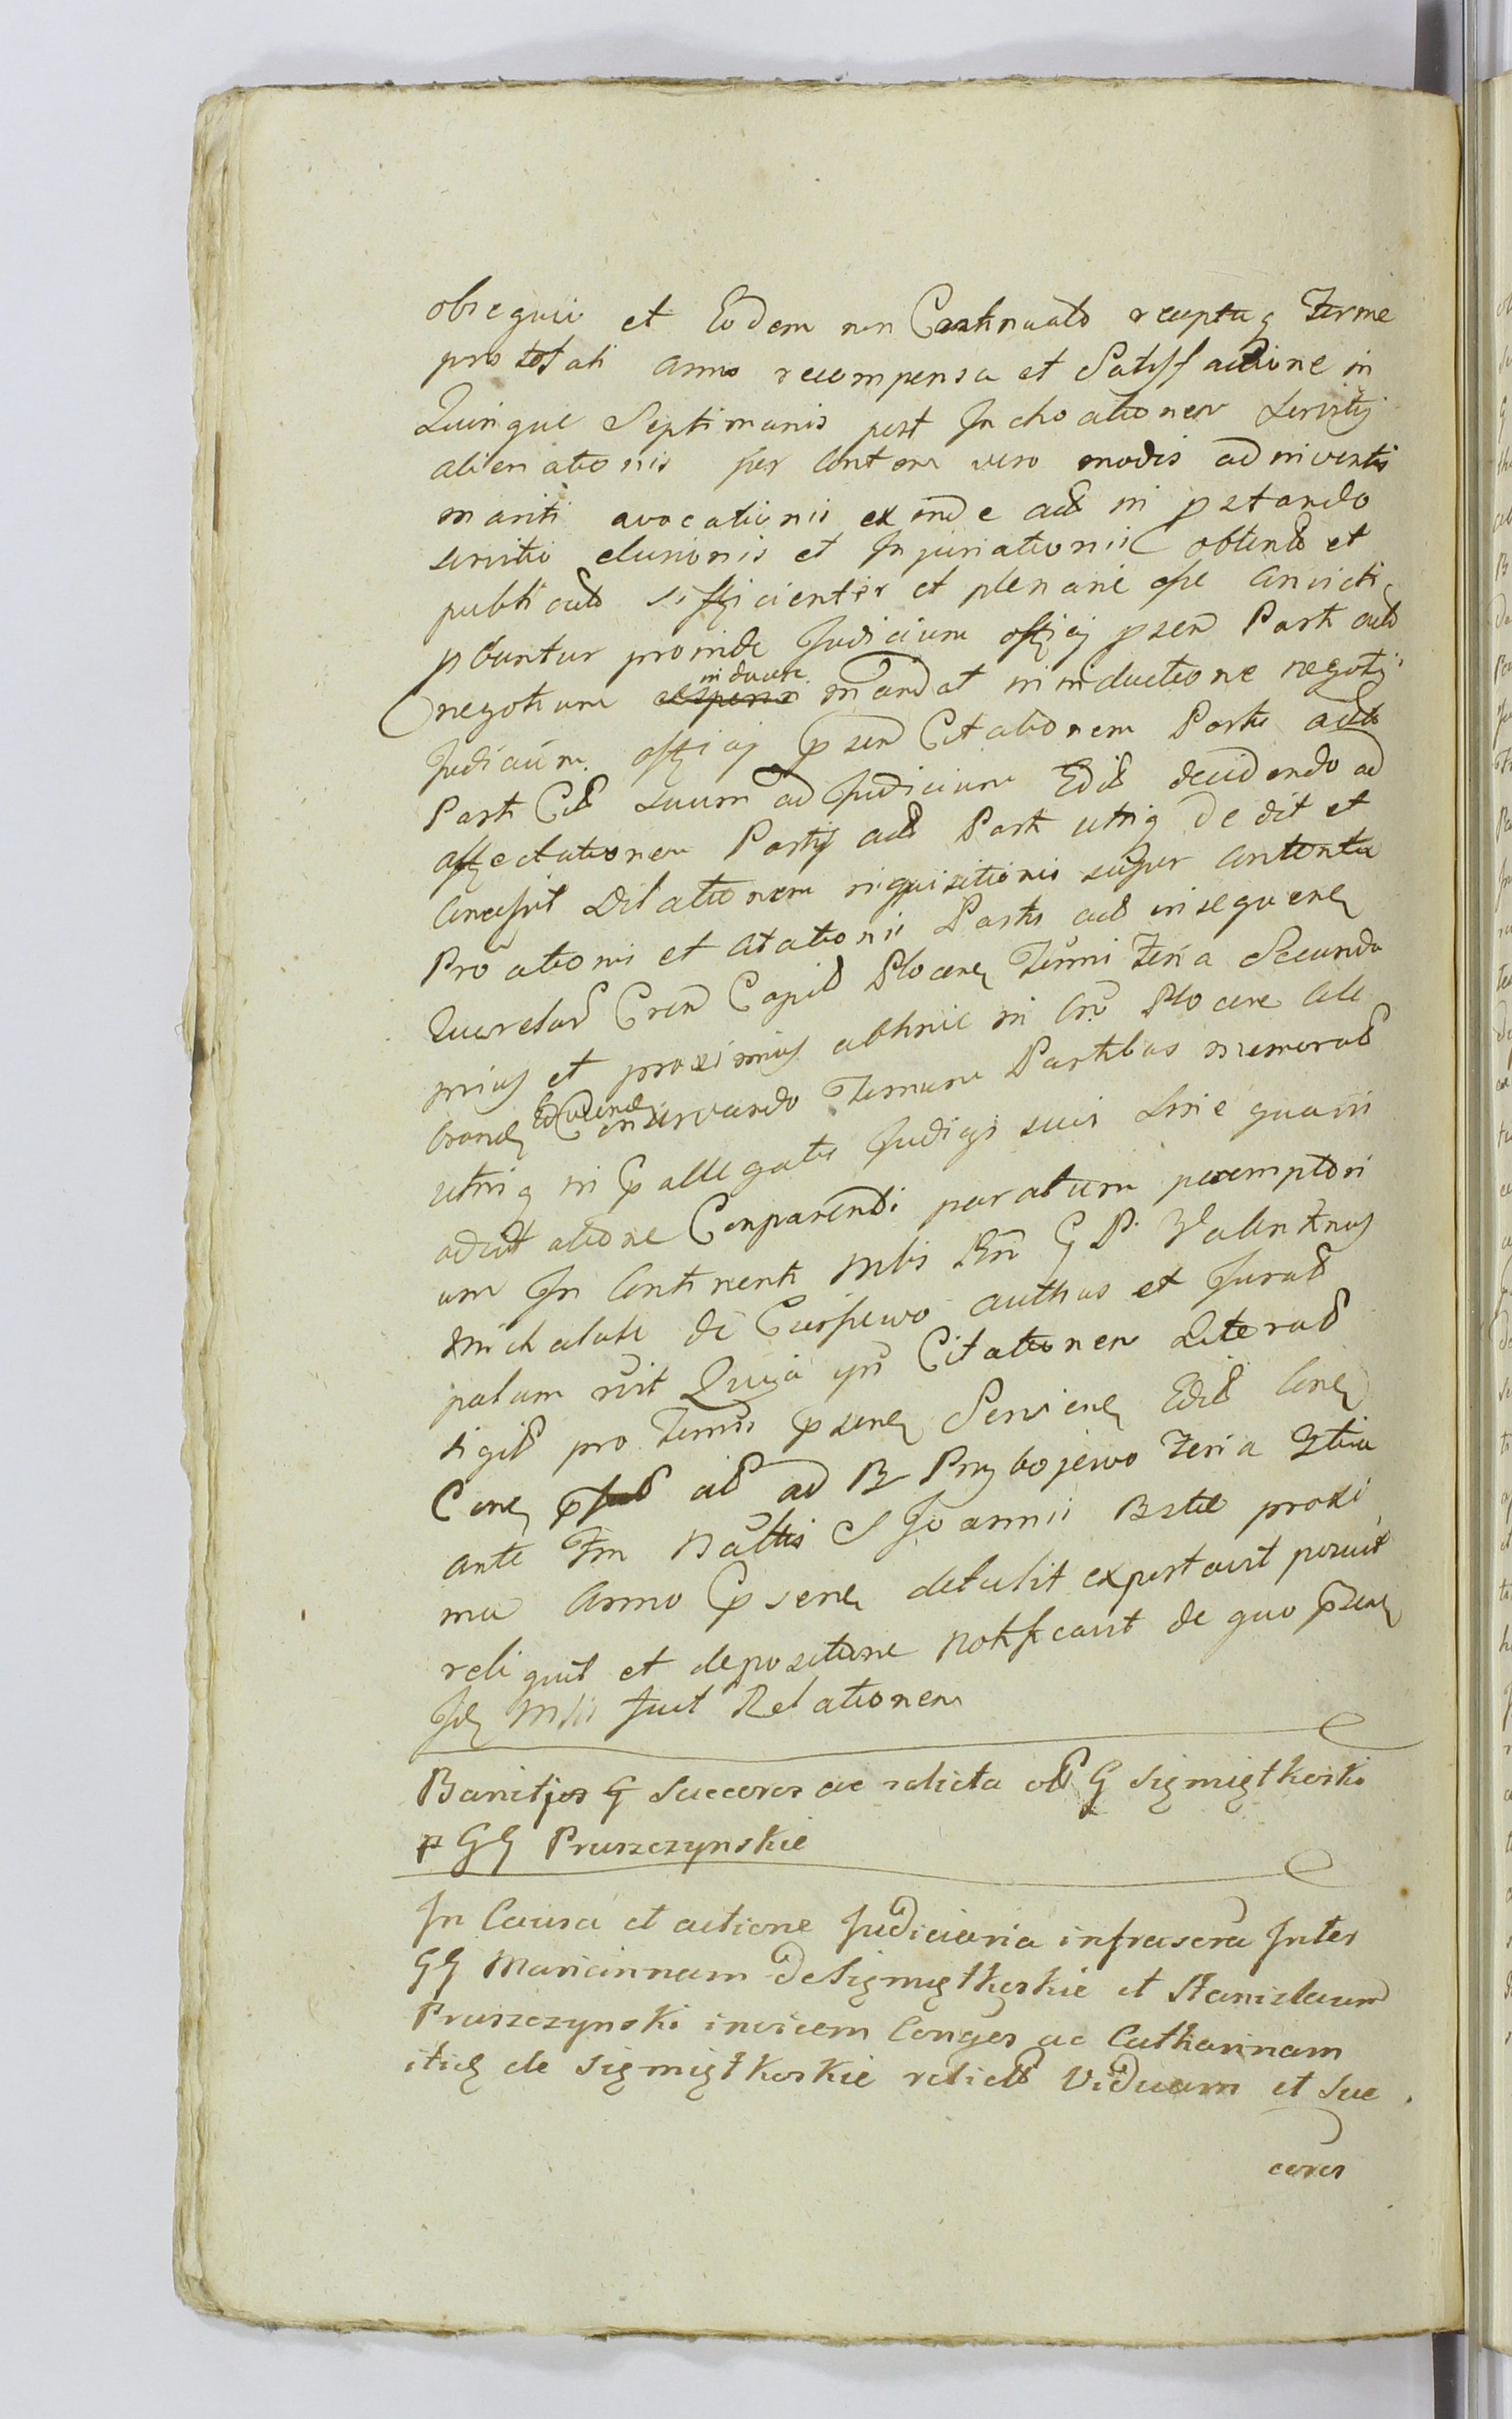 obsequii et Eodem non Continuato receptaq ferme
pro totali anno recompensa et Satisfactione in
Quinque Septimanis post Inchoationem servitij
alienationis per Contem vero modis adinventis
mariti avocationis exinde act in pstando
servitio elusionis et Injuriationis obtent et
publicato sifficienter et plenarie esse Convicti
pbuntur proinde Judicium officij psen Parti acto
negotium inducere mandat in inductione negotij
Judicium officij psen Citationem Partis acto
Parti Cit suum ad Judicium Edit decidendo ad
affectationem Partis act Parti utriq dedit et
Concessit Dilationem inquisitionis super Contenta
Proationis et Citationis Partis act in sequen
Querelar Cren Capit Plocen Termi feria Secunda
prius et proximius abhinc in Cro Plocen Cele
brand conservando Termum Partibus memorat
utriq in pallegatis Judicijs suis sine quavis
adcitatione Comparendi paratum peremptori
um In Continenti Mlis Rni G P Valentinus
Michalski de Cierszewo authus et Jurat
palam rvit Quia ipse Citationem Literat
sigit pro Termis psen Servien Edit Con
Cen act ad B Przybojewo feria 3tia
ante Fm Naltis S Joannis Bstae proxi
ma Anno psen detulit exportavit posuit
reliquit et depositione notificavit de quo psen
Idq Mlis fuit Relationem
Banitjos G Succeror ac relicta olt G Sięmiętkoski
p GG Pruszczynskie
In Causa et actione Judiciaria infrascra Inter
GG Mariannam de Sięmiętkoskie et Stanislaum
Pruszczynski invicem Conges ac Catharinam
itidę de Sięmiętkoskie relict Viduam et suc
ceror